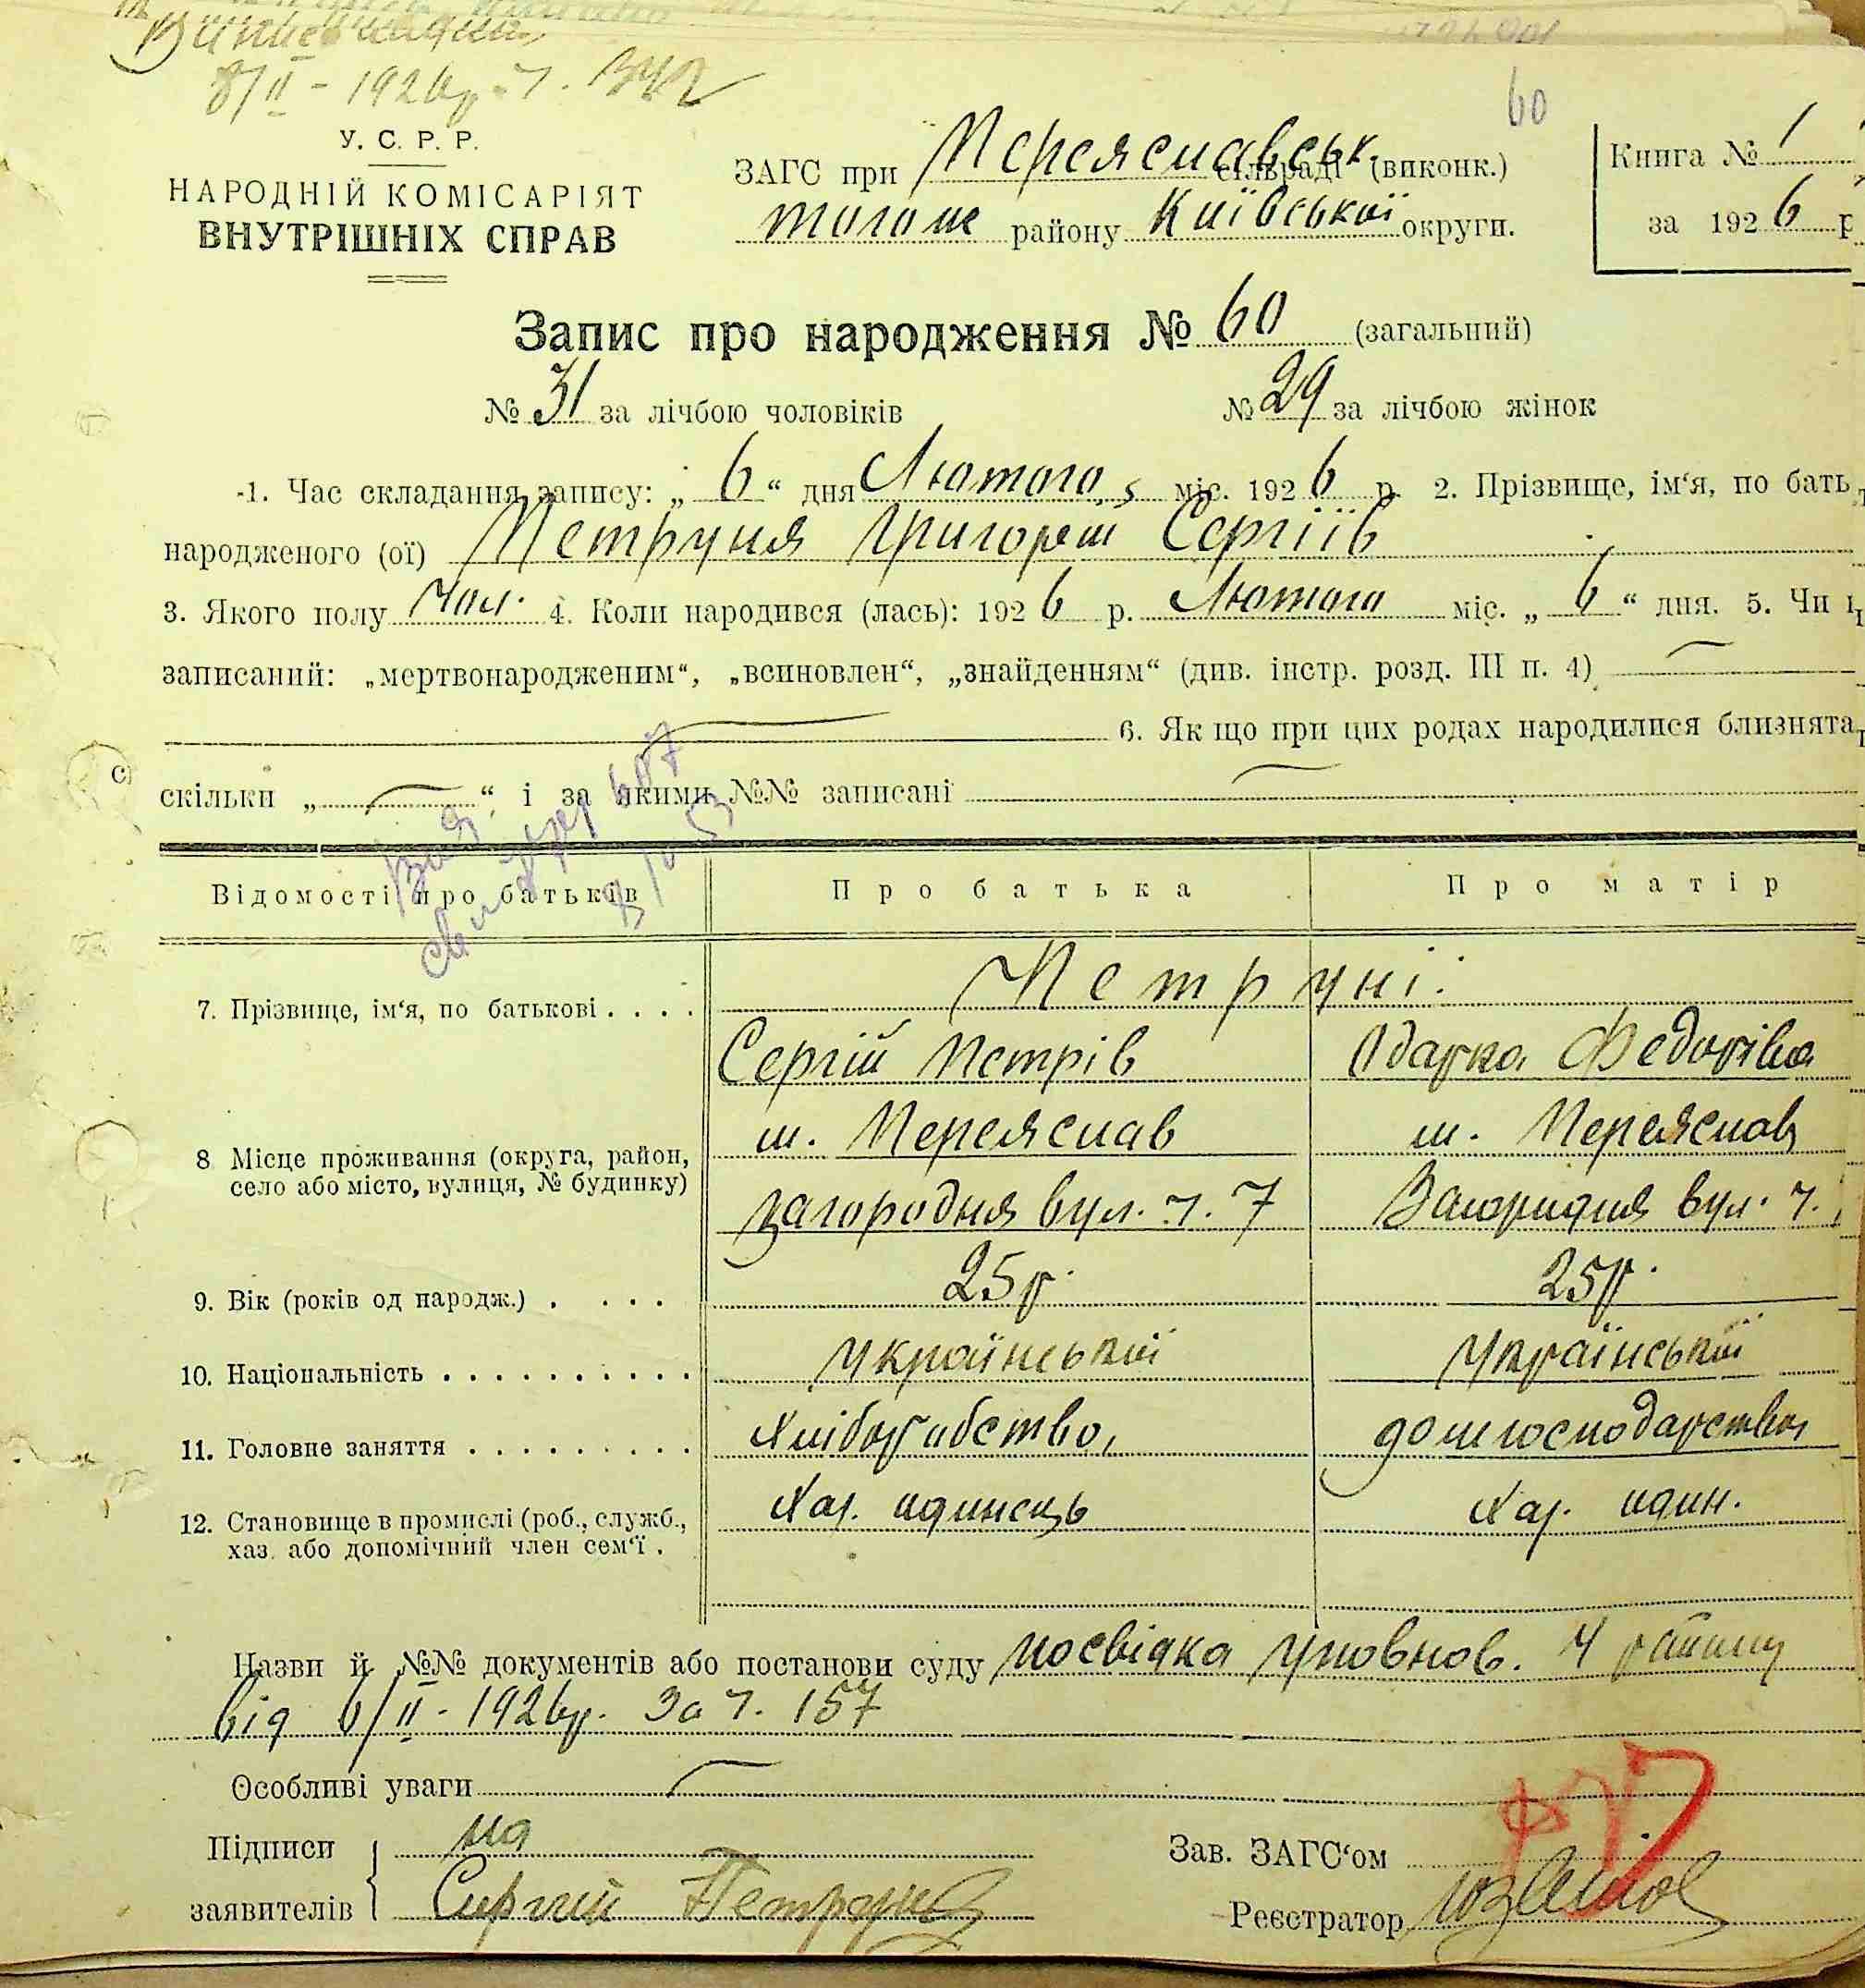 8/II - 1926р. ч.
60
У. С. Р. Р.
НАРОДНІЙ КОМІСАРІЯТ
ВНУТРІШНІХ СПРАВ
ЗАГС при Переяславськ. сільраді (виконк.)
того ж району Київської округи.
Книга № 1
за 1926 р
Запис про народження № 60 (загальний)
№ 31 за лічбою чоловіків № 29 за лічбою жінок
1. Час складання запису: „ 6 “ дня Лютого міс. 1926 р. 2. Прізвище, ім‘я, по бать
народженого (ої) Петруня Григорій Сергіїв
3. Якого полу чол. 4. Коли народився (лась): 1926 р. Лютого міс. „ 6 “ дня. 5. Чи
записаний: „мертвонародженим“, „всиновлен“, „знайденням“ (див. інстр. розд. III п. 4)
6. Як що при цих родах народилися близнята,
скільки „ “ і за якими №№ записані
Відомості про батьків Про батька Про матір
Петруні.
7. Прізвище, ім‘я, по батькові . . . .
Сергій Петрів Одарка Федорівна
м. Переяслав м. Переяслав
8 Місце проживання (округа, район,
село або місто, вулиця, № будинку)
Загородня вул. ч. 7 Загородня вул. ч.
9. Вік (років од народж.) . . . . 25 р. 25 р.
10. Національність . . . . . . . . . . Української Української
11. Головне заняття . . . . . . . . . Хліборобство, домгосподарство
12. Становище в промислі (роб., служб., Хаз. одинець Хаз. один.
хаз. або допомічний член сем‘ї .
Назви й №№ документів або постанови суду посвідка уповнов. 4 району
від 6/II - 1926р. за ч. 157
Особливі уваги
Підписи
заявителів Сергий Петруня
Зав. ЗАГС‘ом
Реєстратор